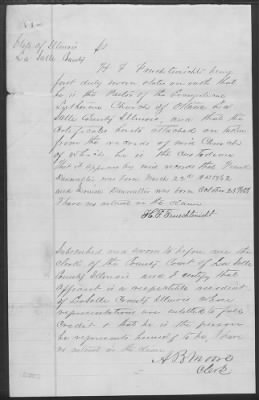 State of Illinois } ss
La Salle County
H. F. Fruechtenicht being
first duly sworn states on oath that
he is the Pastor of the Evangelical
Lutheran Church of Ottawa La
Salle County Illinois, and that the
Certificates hereto attached are taken
from the records of said Church
of which he is the custodian
That it appears by said records that
was born March 23rd 1882
and Louisa was born October 25
I have no interest in the claim
H. F. Fruechtenicht
Subscribed and sworn to before me the
Clerk of the County Court of La Salle
County Illinois and I certify that
affiant is a respectable resident
of La Salle County Illinois whose
representations are entitled to full
credit & that he is the person
he represents himself to be, I have
no interest in the claim
A B Moore
Clerk